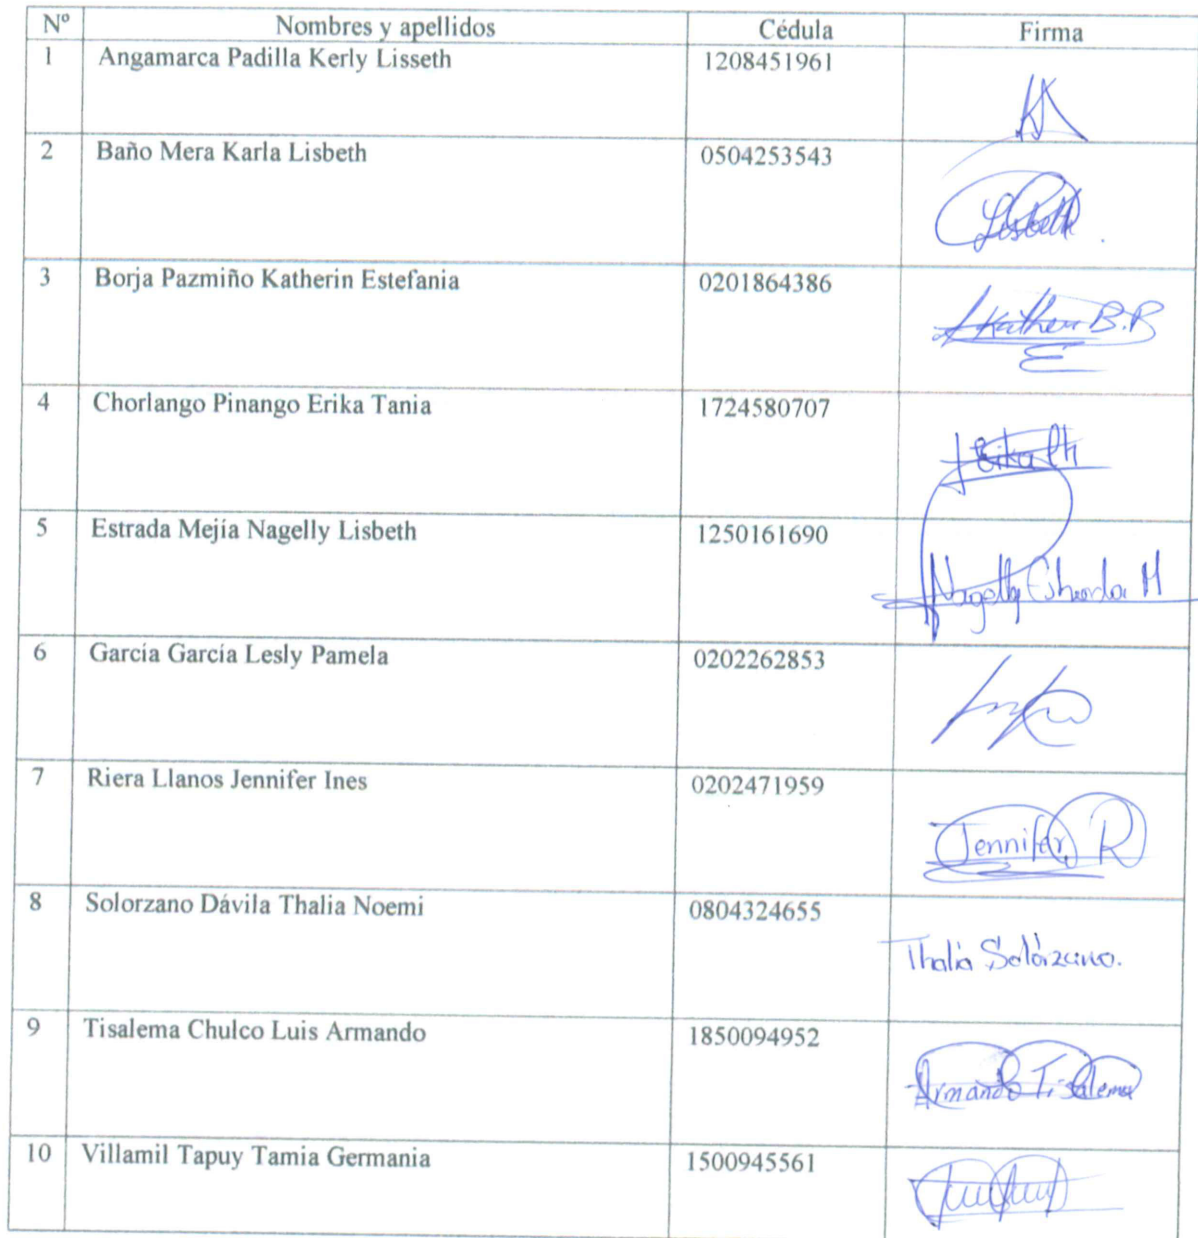 Nº Nombres y apellidos Cédula Firma
1 Angamarca Padilla Kerly Lisseth 1208451961
2 Baño Mera Karla Lisbeth 0504253543
Lisbeth.
3 Borja Pazmiño Katherin Estefania 0201864386
B.P
4 Chorlango Pinango Erika Tania 1724580707
Erika Ch
5 Estrada Mejía Nagelly Lisbeth 1250161690
Nagelly Estrada M
6 García García Lesly Pamela 0202262853
7 Riera Llanos Jennifer Ines 0202471959
Jennifer R
8 Solorzano Dávila Thalia Noemi 0804324655
Thalia Solórzano.
9 Tisalema Chulco Luis Armando 1850094952
Armando Tisalema
10 Villamil Tapuy Tamia Germania 1500945561